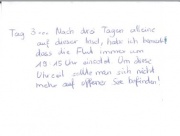 Tag 3 ... Nach drei Tagen alleine
auf dieser Insel, habe ich bemerkt
dass die Flut immer um
19:15 Uhr einsetzt. Um diese
Uhrzeit sollte man sich nicht
mehr auf offener See befinden!